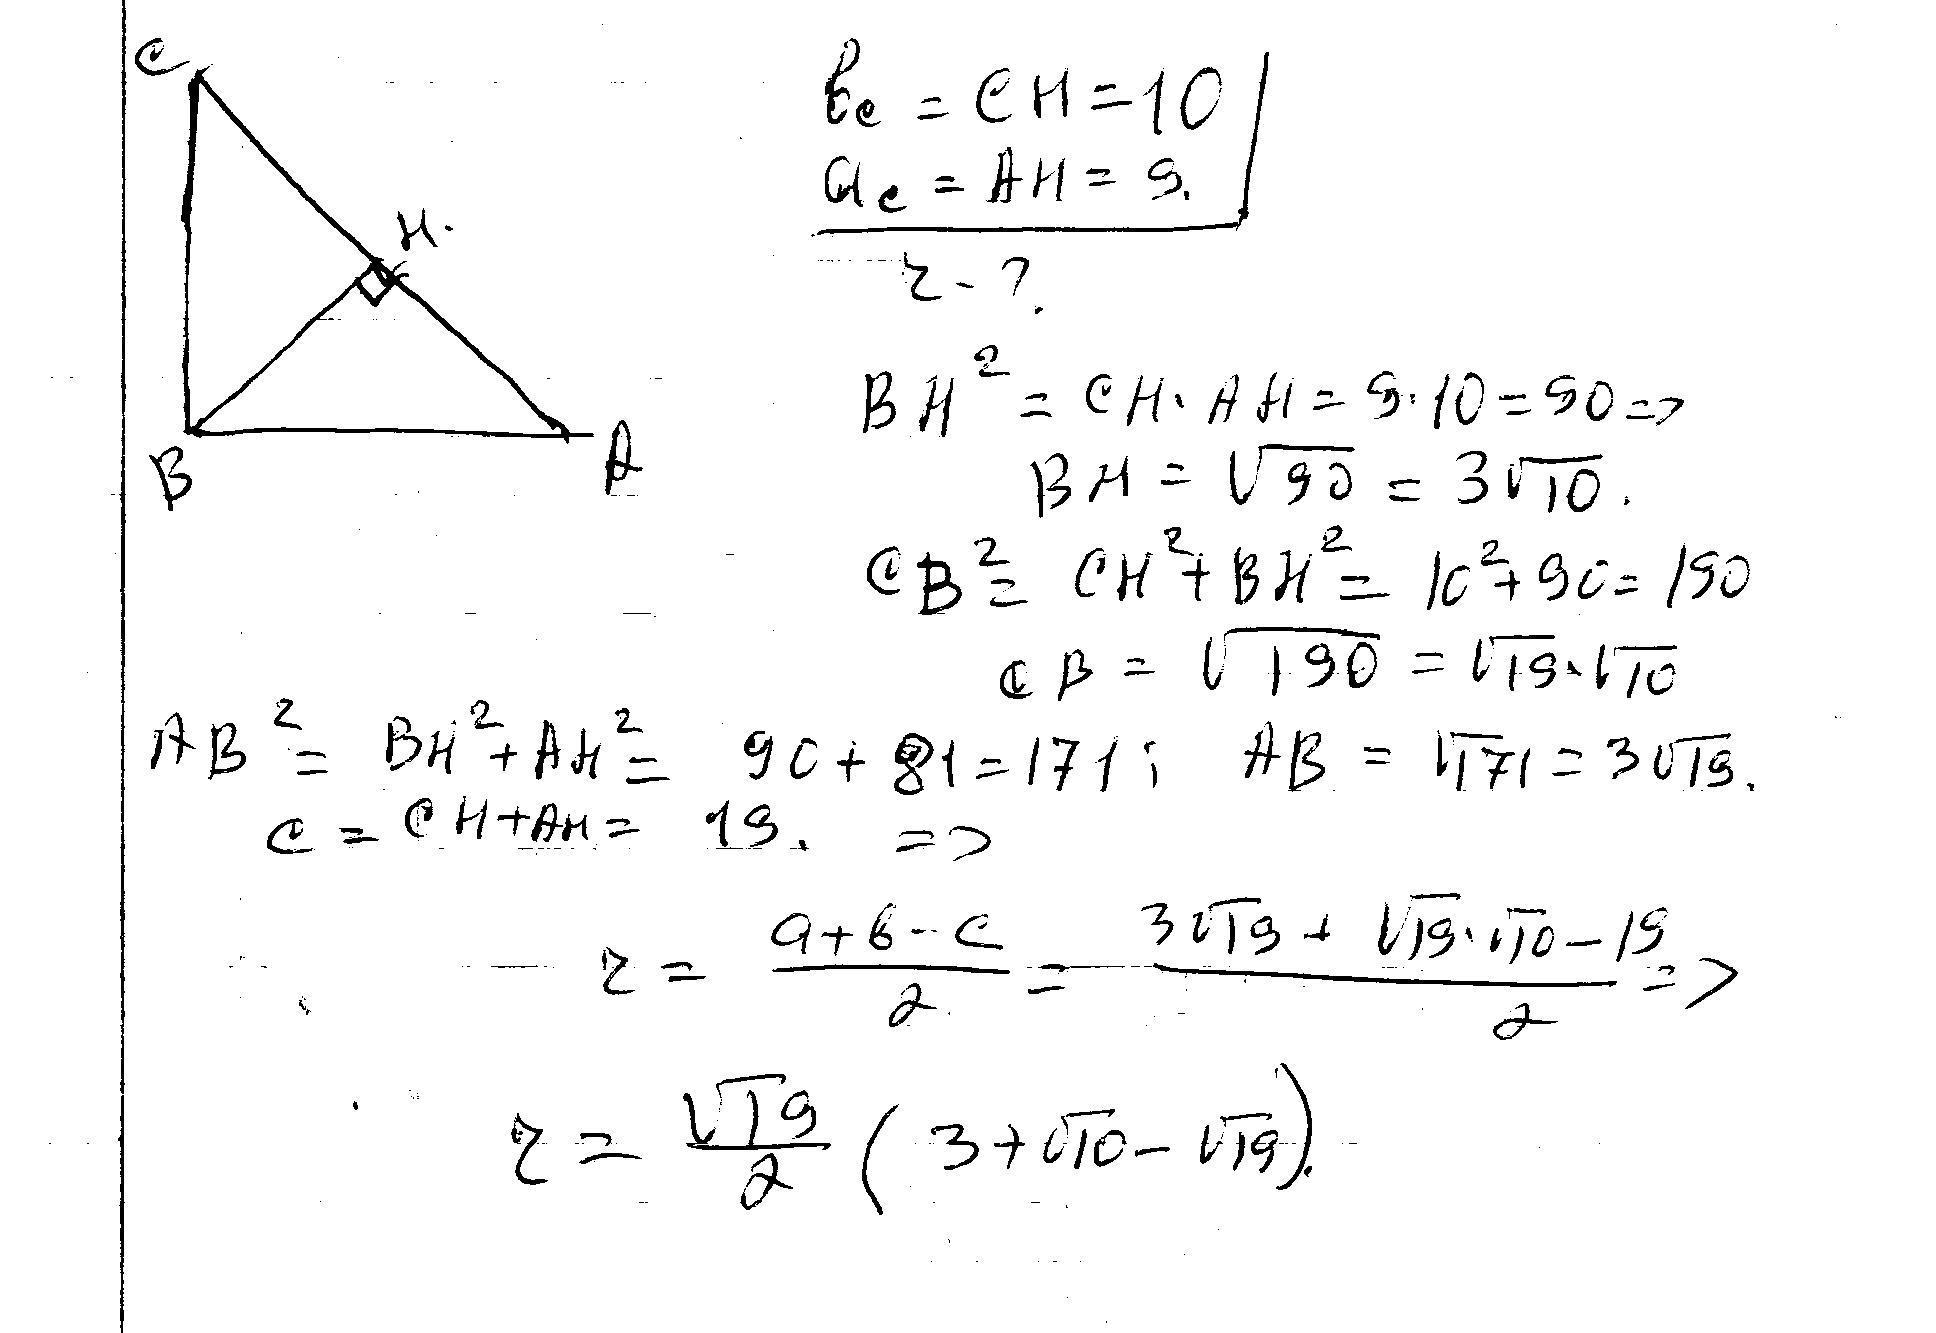 C
H.
B
A
b_c = CH = 10
a_c = AH = 9.
r - ?
BH² = CH · AH = 9 · 10 = 90 =>
BH = √90 = 3√10.
CB² = CH² + BH² = 10² + 90 = 190
CB = √190 = √19 · √10
AB² = BH² + AH² = 90 + 81 = 171; AB = √171 = 3√19.
c = CH + AH = 19. =>
r = (a + b - c)/2 = (3√19 + √19 · √10 - 19)/2 =>
r = √19/2 (3 + √10 - √19).